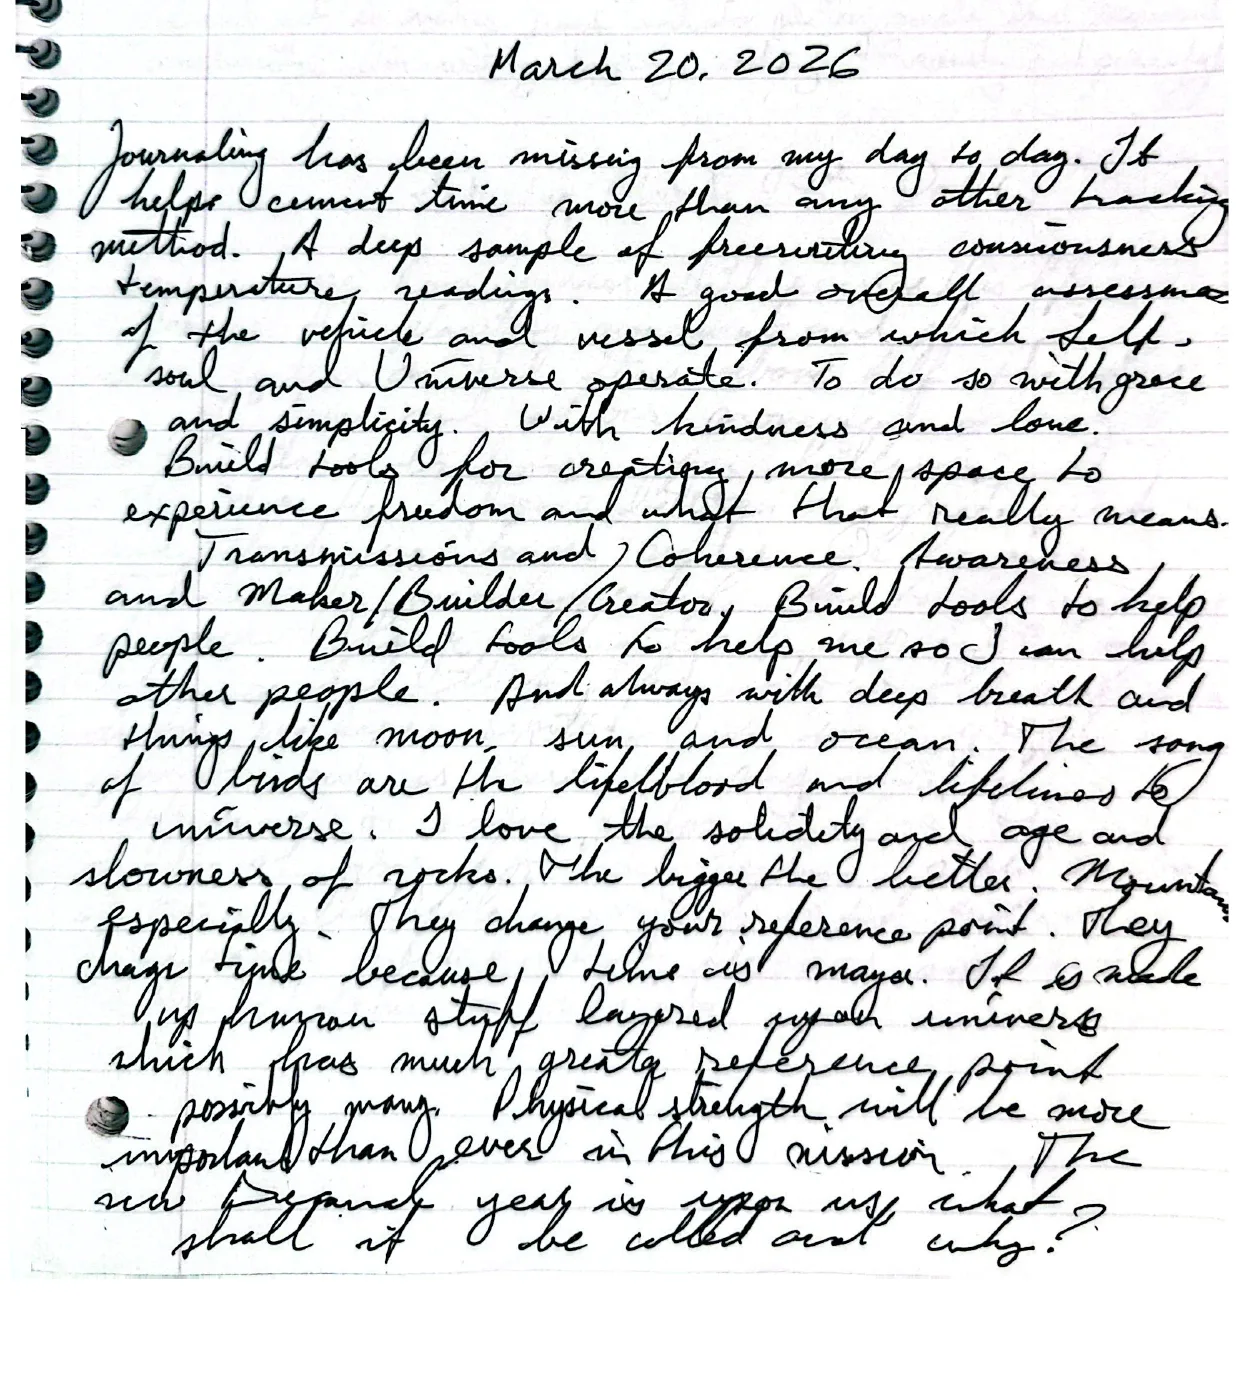 March 20, 2026
Journaling has been missing from my day to day. It
helps cement time more than any other tracking
method. A deep sample of freewriting consciousness
temperature readings. A good overall assessment
of the vehicle and vessel from which Self,
soul and Universe operate. To do so with grace
and simplicity. With kindness and love.
Build tools for creating more space to
experience freedom and what that really means.
Transmissions and Coherence. Awareness
and Maker/Builder/Creator, Build tools to help
people. Build tools to help me so I can help
other people. And always with deep breath and
things like moon, sun, and ocean. The song
of birds are the lifelblood and lifelines to
universe. I love the solidity and age and
slowness of rocks. The bigger the better. Mountains
especially. They change your reference point. They
change time because time is maya. It is made
up human stuff layered upon universe
which has much greater reference point
possibly many. Physical strength will be more
important than ever in this mission. The
new year is upon us, what
shall it be called and why?